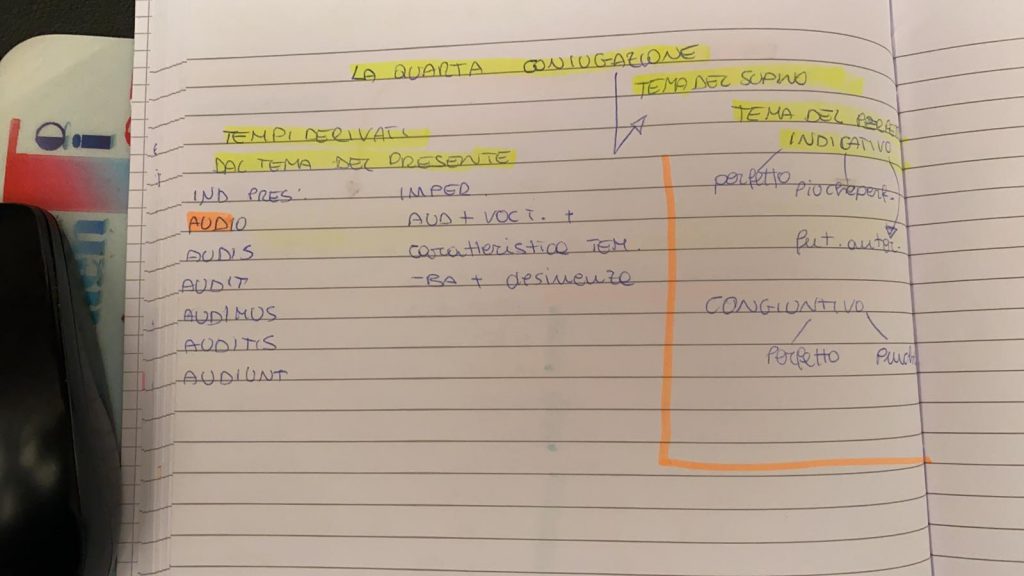 LA QUARTA CONIUGAZIONE
TEMA DEL SUPINO
TEMA DEL
INDICATIVO
perfetto piuccheperf.
fut. anter.
CONGIUNTIVO
perfetto
TEMPI DERIVATI
DAL TEMA DEL PRESENTE
IND PRES:
AUDIO
AUDIS
AUDIT
AUDIMUS
AUDITIS
AUDIUNT
IMPER
AUD + VOCT. +
caratteristica TEM.
-BA + desinenze